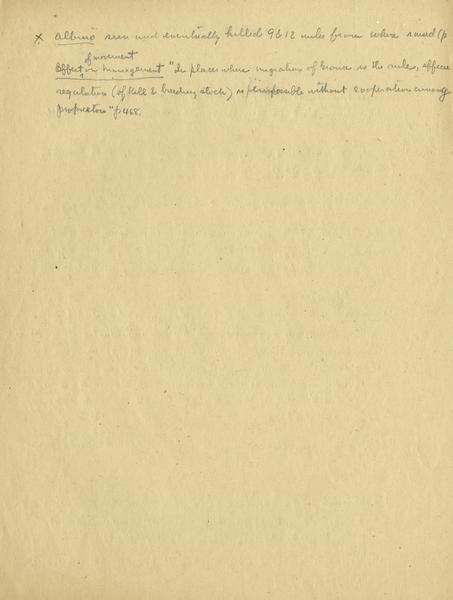 x albino seen and eventually killed 9 to 12 miles from where raised (p
of movement
Effect on management "In places where migration of Grouse is the rule, efficient
regulation (of kill & breeding stock) is impossible without cooperation among
proprietors" p 468.